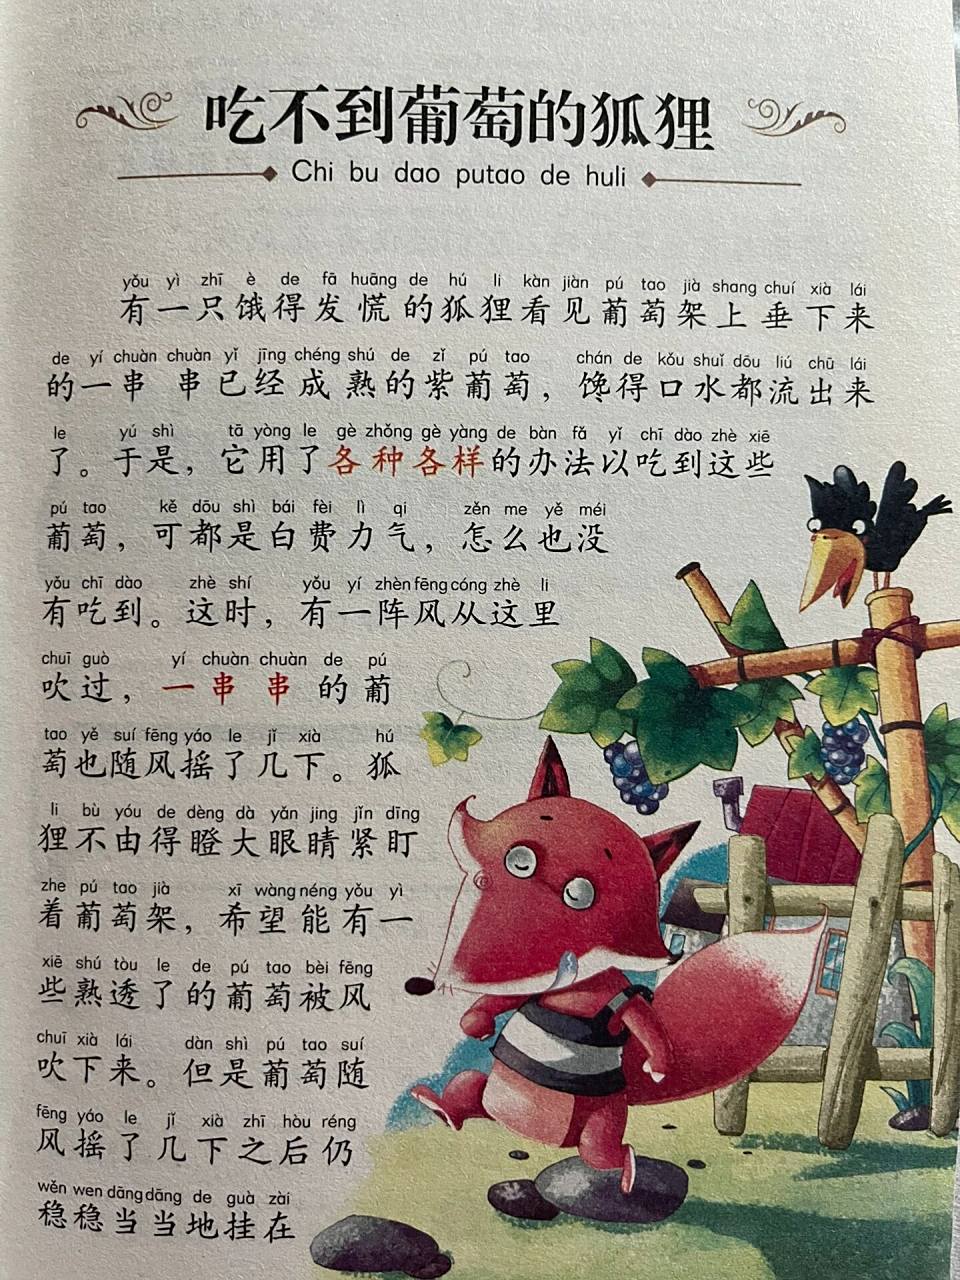 吃不到葡萄的狐狸
Chi bu dao putao de huli
yǒu yì zhī è de fā huāng de hú li kàn jiàn pú tao jià shang chuí xià lái
有一只饿得发慌的狐狸看见葡萄架上垂下来
de yí chuàn chuàn yǐ jīng chéng shú de zǐ pú tao chán de kǒu shuǐ dōu liú chū lái
的一串串已经成熟的紫葡萄，馋得口水都流出来
le yú shì tā yòng le gè zhǒng gè yàng de bàn fǎ yǐ chī dào zhè xiē
了。于是，它用了各种各样的办法以吃到这些
pú tao kě dōu shì bái fèi lì qi zěn me yě méi
葡萄，可都是白费力气，怎么也没
yǒu chī dào zhè shí yǒu yí zhèn fēng cóng zhè li
有吃到。这时，有一阵风从这里
chuī guò yí chuàn chuàn de pú
吹过，一串串的葡
tao yě suí fēng yáo le jǐ xià hú
萄也随风摇了几下。狐
li bù yóu de dèng dà yǎn jing jǐn dīng
狸不由得瞪大眼睛紧盯
zhe pú tao jià xī wàng néng yǒu yì
着葡萄架，希望能有一
xiē shú tòu le de pú tao bèi fēng
些熟透了的葡萄被风
chuī xià lái dàn shì pú tao suí
吹下来。但是葡萄随
fēng yáo le jǐ xià zhī hòu réng
风摇了几下之后仍
wěn wen dāng dāng de guà zài
稳稳当当地挂在